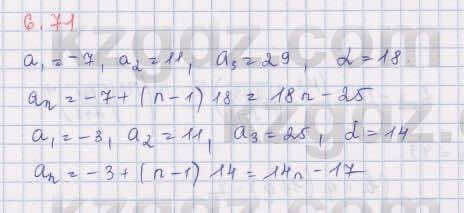 6.71
a₁ = -7, a₂ = 11, a₃ = 29, d = 18.
aₙ = -7 + (n - 1) 18 = 18n - 25
a₁ = -3, a₂ = 11, a₃ = 25, d = 14
aₙ = -3 + (n - 1) 14 = 14n - 17